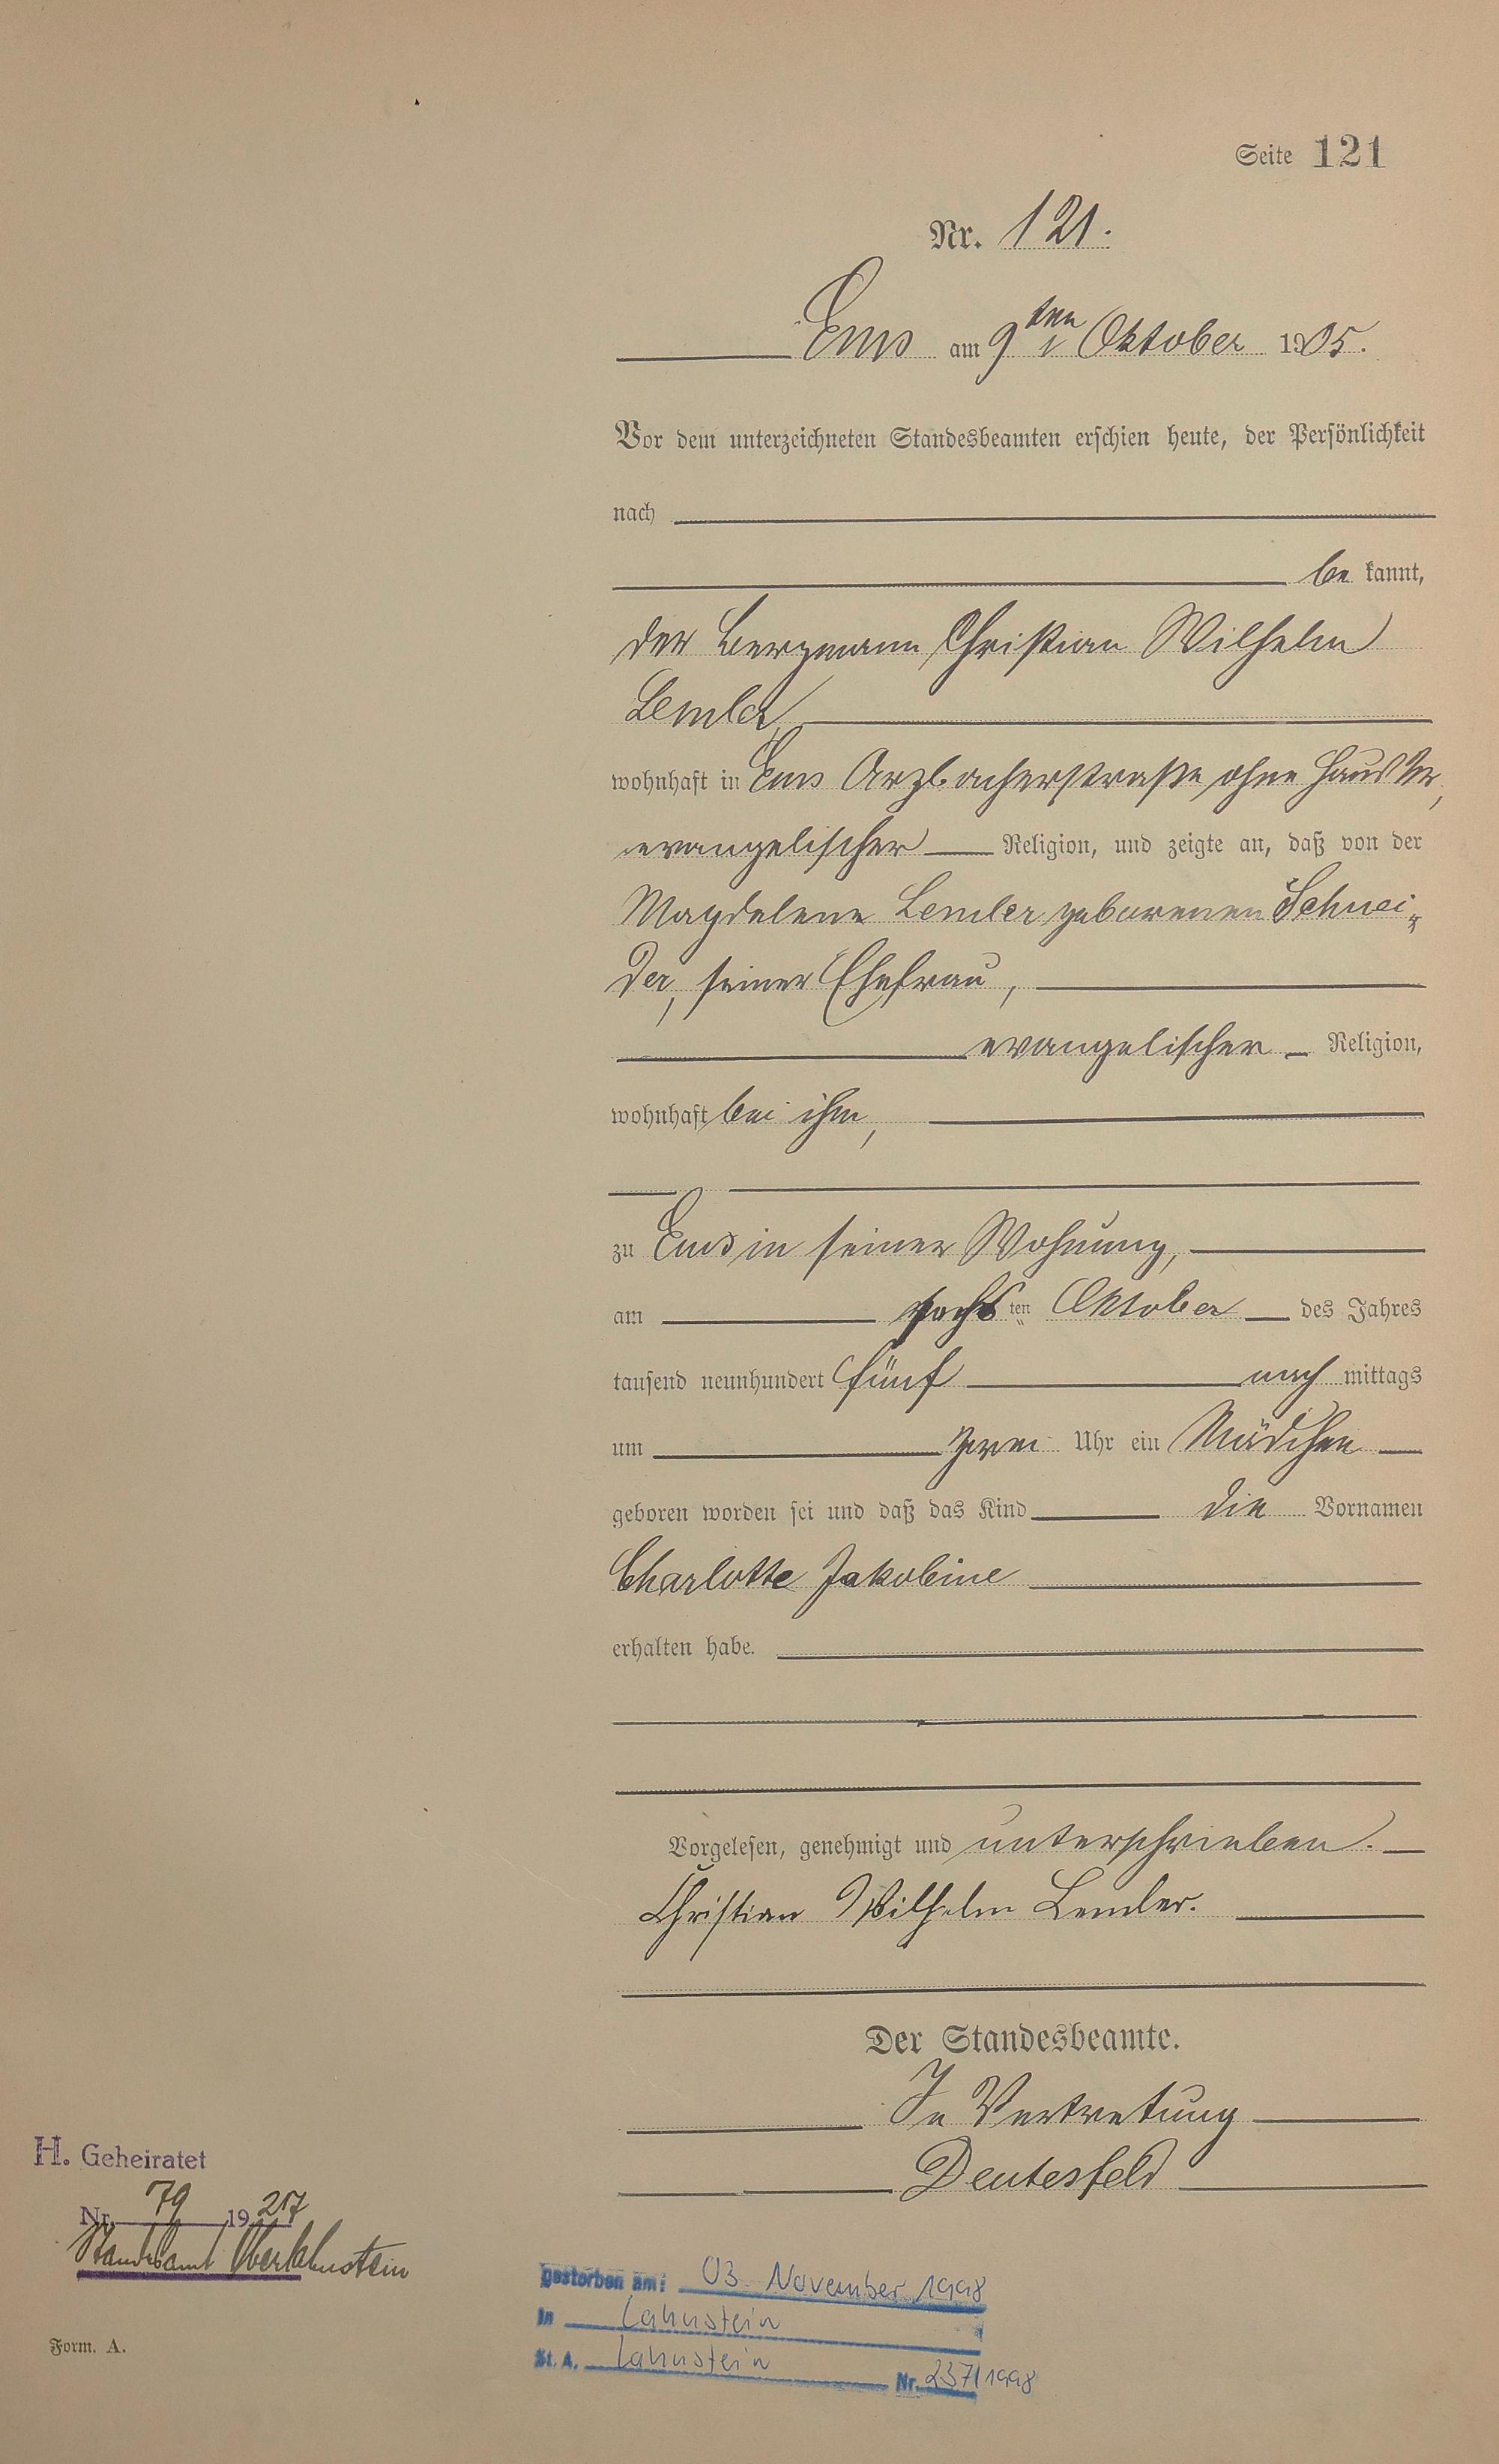 Seite 121
Nr. 121.
Ems am 9ten Oktober 1905.
Vor dem unterzeichneten Standesbeamten erschien heute, der Persönlichkeit
nach
be kannt,
der Bergmann Christian Wilhelm
Lemler,
wohnhaft in Ems Arzbacherstraße ohne Haus Nr,
evangelischer Religion, und zeigte an, daß von der
Magdalene Lemler geborenen Schnei-
der, seiner Ehefrau,
evangelischer Religion,
wohnhaft bei ihm,
zu Ems in seiner Wohnung,
am sechs ten Oktober des Jahres
tausend neunhundert fünf nach mittags
um zwei Uhr ein Mädchen
geboren worden sei und daß das Kind die Vornamen
Charlotte Jakobine
erhalten habe.
Vorgelesen, genehmigt und unterschrieben.
Christian Wilhelm Lemler.
Der Standesbeamte.
In Vertretung
Deutesfeld
H. Geheiratet
Nr. 79 1927
Standesamt Oberlahnstein
gestorben am: 03. November 1998
in Lahnstein
St. A. Lahnstein Nr. 237/1998
Form. A.